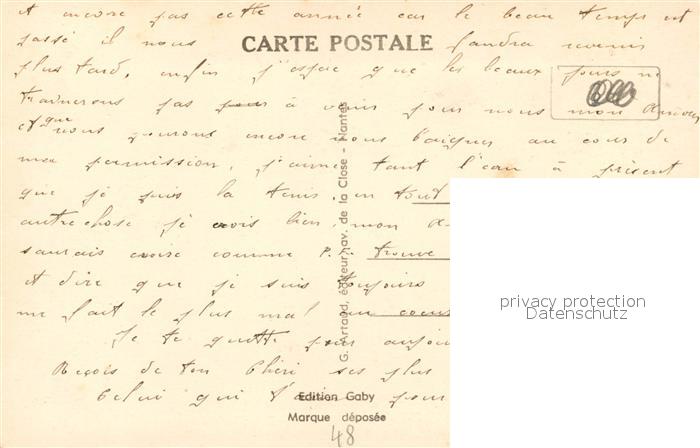 et encore pas cette année car le beau temps est
passé il nous faudra revenir
CARTE POSTALE
plus tard, enfin j'espère que les beaux jours ne
traînerons pas à venir pour nous mon Amour
et que nous pourrons encore nous baigner au cours de
ma permission, j'aime tant l'eau à présent
que je puis la tenir, en tout
autre chose je crois bien, mon
saurais croire comme P.F. trouve
et dire que je suis toujours
me fait le plus mal au coeur
Je te quitte pour aujou
Reçois de ton Chéri ses plus
Celui qui t'aime pour
G. Artaud, éditeur, av. de la Close - Nantes
Edition Gaby
Marque déposée
48
privacy protection
Datenschutz